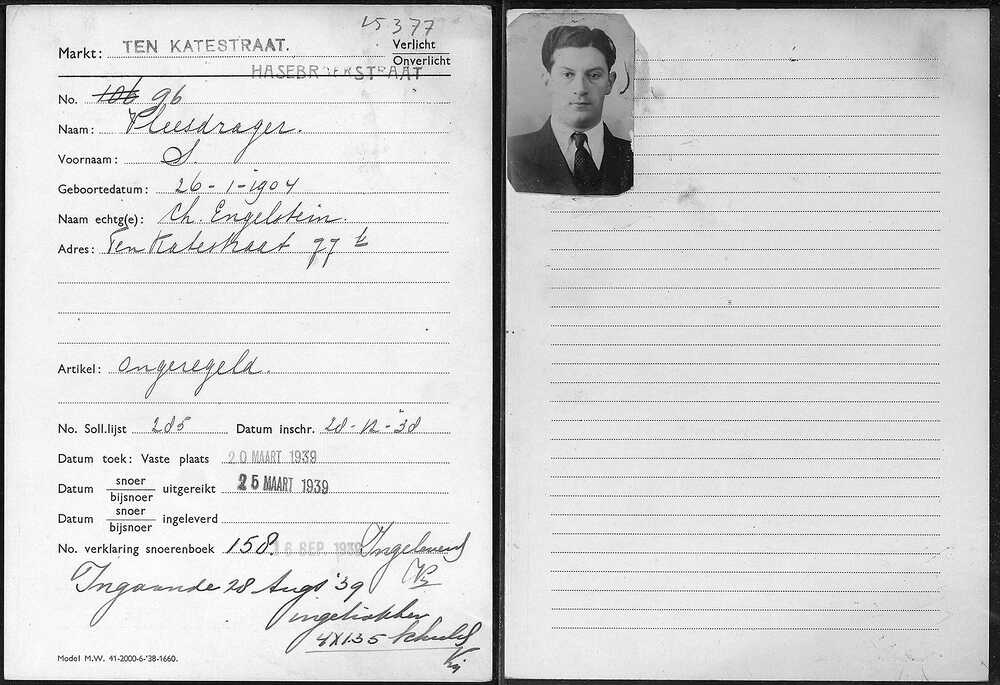 15377
Markt: TEN KATESTRAAT. Verlicht
Onverlicht
HASEBROEKSTRAAT
No. 106 96
Naam: Vleesdrager.
Voornaam: S.
Geboortedatum: 26-1-1904
Naam echtg(e): Ch. Engelstein.
Adres: Ten Katestraat 97
Artikel: ongeregeld.
No. Soll.lijst 285 Datum inschr. 28-12-38
Datum toek: Vaste plaats 20 MAART 1939
Datum snoer
bijsnoer uitgereikt 25 MAART 1939
Datum snoer
bijsnoer ingeleverd
No. verklaring snoerenboek 158 16 SEP. 1939 Ingeleverd
Ingaande 28 Augs '39
ingetrokken
4X1.35 schuld
Model M.W. 41-2000-6-'38-1660.